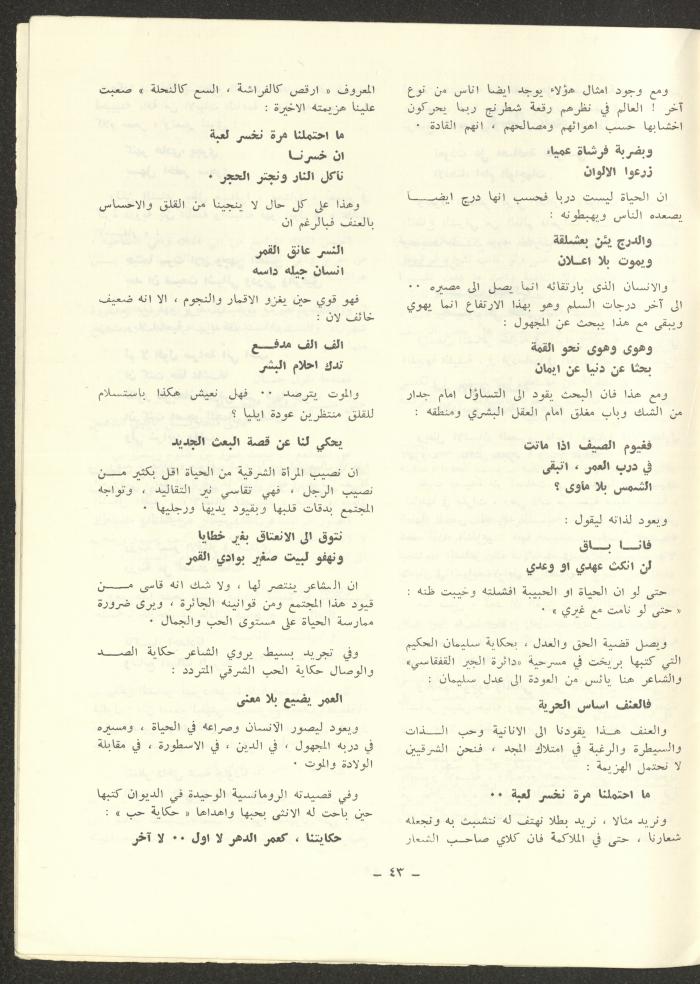 ومع وجود امثال هؤلاء يوجد ايضا اناس من نوع
آخر ! العالم في نظرهم رقعة شطرنج ربما يحركون
اخشابها حسب اهوائهم ومصالحهم ، انهم القادة .
وبضربة فرشاة عمياء
زرعوا الالوان
ان الحياة ليست دربا فحسب انها درج ايضـــا
يصعده الناس ويهبطونه :
والدرج يئن بعشلقة
ويموت بلا اعـلان
والانسان الذى بارتقائه انما يصل الى مصيره ٠٠
الى آخر درجات السلم وهو بهذا الارتفاع انما يهوي
ويبقى مع هذا يبحث عن المجهول :
وهوى وهوى نحو القمة
بحثا عن دنيا عن ايمان
ومع هذا فان البحث يقود الى التساؤل امام جدار
من الشك وباب مغلق امام العقل البشري ومنطقه :
فغيوم الصيف اذا ماتت
في درب العمر ، اتبقى
الشمس بلا مأوى ؟
ويعود لذاته ليقول :
فانــا بــاق
لن انكث عهدي او وعدي
حتى لو ان الحياة او الحبيبة افشلته وخيبت ظنه :
« حتى لو نامت مع غيري » .
ويصل قضية الحق والعدل ، بحكاية سليمان الحكيم
التي كتبها بريخت في مسرحية «دائرة الجير القفقاسي»
والشاعر هنا يائس من العودة الى عدل سليمان :
فالعنف اساس الحرية
والعنف هــذا يقودنا الى الانانية وحب الــذات
والسيطرة والرغبة في امتلاك المجد ، فنحن الشرقيين
لا نحتمل الهزيمة :
ما احتملنا مرة نخسر لعبة ٠٠
ونريد مثالا ، نريد بطلا نهتف له نتشبث به ونجعله
شعارنا ، حتى في الملاكمة فان كلاي صاحب الشعار
المعروف « ارقص كالفراشة ، السع كالنحلة » صعبت
علينا هزيمته الاخيرة :
ما احتملنا مرة نخسر لعبة
ان خسرنــا
نأكل النار ونجتر الحجر .
وهذا على كل حال لا ينجينا من القلق والاحساس
بالعنف فبالرغم ان
النسر عانق القمر
انسان جيله داسه
فهو قوي حين يغزو الاقمار والنجوم ، الا انه ضعيف
خائف لان :
الف الف مدفــع
تدك احلام البشر
والموت يترصد ٠٠ فهل نعيش هكذا باستسلام
للقلق منتظرين عودة ايليا ؟
يحكي لنا عن قصة البعث الجديد
ان نصيب المرأة الشرقية من الحياة اقل بكثير مــن
نصيب الرجل ، فهي تقاسي نير التقاليد ، وتواجه
المجتمع بدقات قلبها وبقيود يديها ورجليها .
نتوق الى الانعتاق بغير خطايا
ونهفو لبيت صغير بوادي القمر
ان الشاعر ينتصر لها ، ولا شك انه قاسى مــن
قيود هذا المجتمع ومن قوانينه الجائرة ، ويرى ضرورة
ممارسة الحياة على مستوى الحب والجمال .
وفي تجريد بسيط يروي الشاعر حكاية الصــد
والوصال حكاية الحب الشرقي المتردد :
العمر يضيع بلا معنى
ويعود ليصور الانسان وصراعه في الحياة ، ومسيره
في دربه المجهول ، في الدين ، في الاسطورة ، في مقابلة
الولادة والموت .
وفي قصيدته الرومانسية الوحيدة في الديوان كتبها
حين باحت له الانثى بحبها واهداها « حكاية حب » :
حكايتنا ، كعمر الدهر لا اول ٠٠ لا آخر
– ٤٣ –